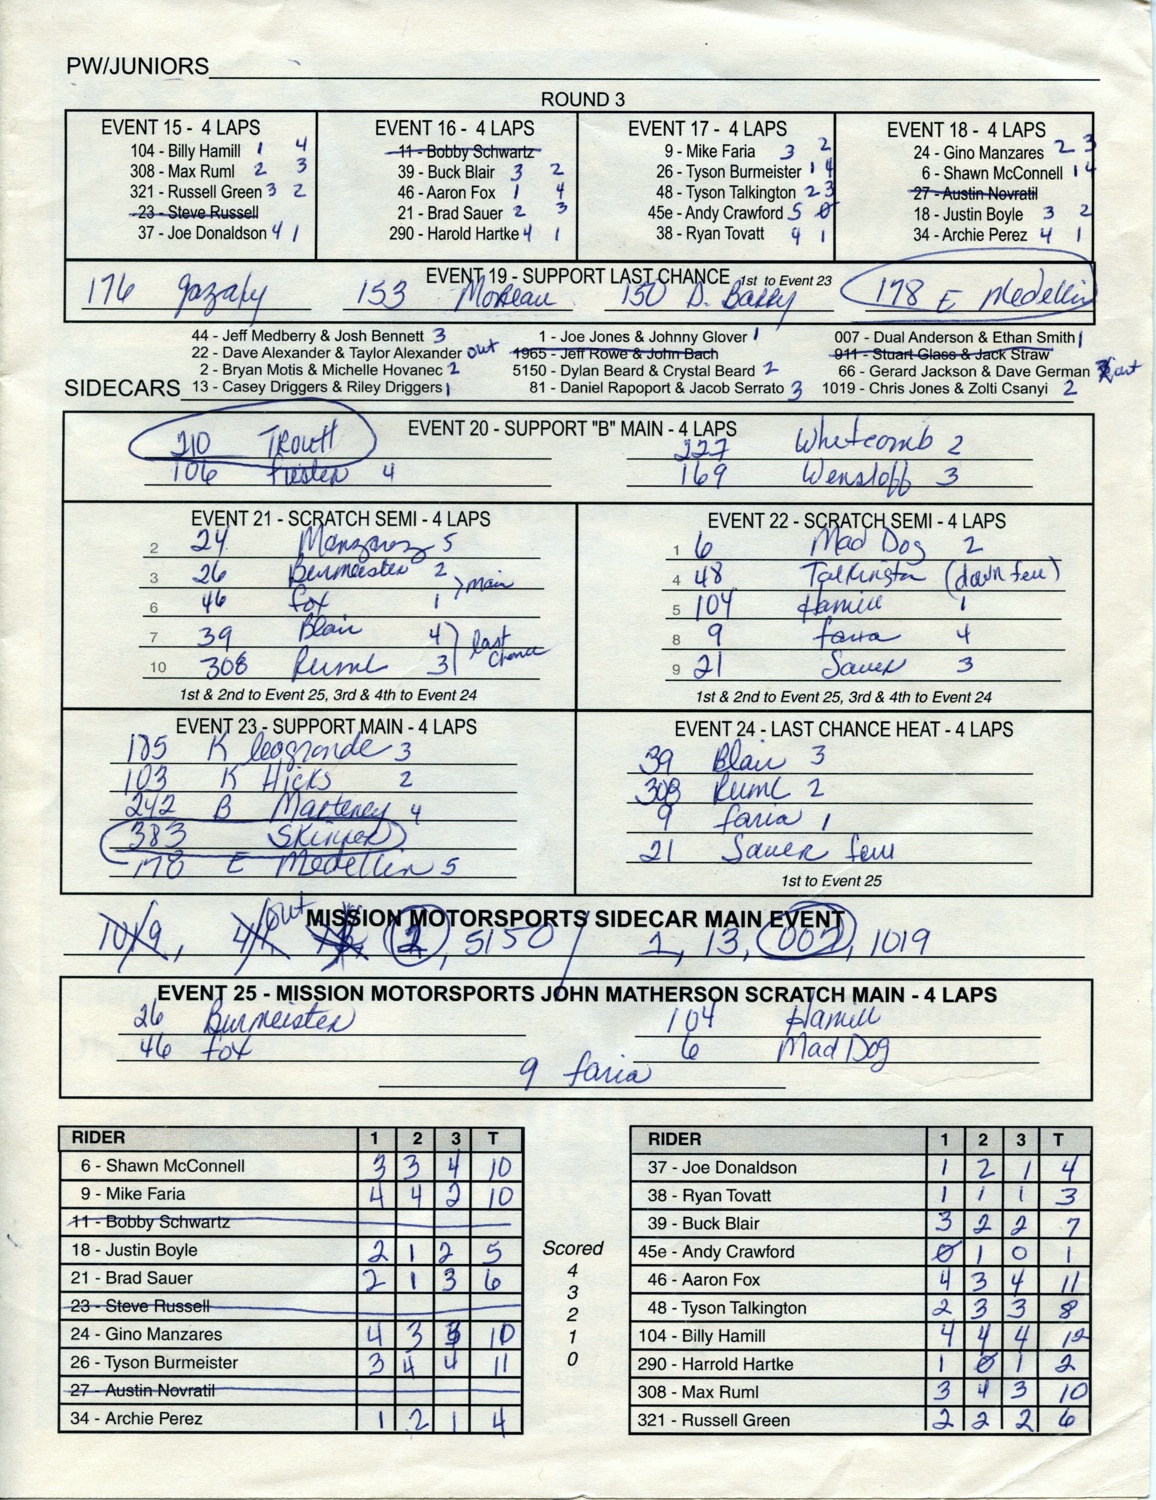 PW/JUNIORS
ROUND 3
EVENT 15 - 4 LAPS
104 - Billy Hamill 1 4
308 - Max Ruml 2 3
321 - Russell Green 3 2
23 - Steve Russell
37 - Joe Donaldson 4 1
EVENT 16 - 4 LAPS
11 - Bobby Schwartz
39 - Buck Blair 3 2
46 - Aaron Fox 1 4
21 - Brad Sauer 2 3
290 - Harold Hartke 4 1
EVENT 17 - 4 LAPS
9 - Mike Faria 3 2
26 - Tyson Burmeister 1 4
48 - Tyson Talkington 2 3
45e - Andy Crawford 5 0
38 - Ryan Tovatt 4 1
EVENT 18 - 4 LAPS
24 - Gino Manzares 2 3
6 - Shawn McConnell 1 4
27 - Austin Novratil
18 - Justin Boyle 3 2
34 - Archie Perez 4 1
EVENT 19 - SUPPORT LAST CHANCE 1st to Event 23
176 153 Moreau 150 D. Barry 178 E Medellin
44 - Jeff Medberry & Josh Bennett 3
22 - Dave Alexander & Taylor Alexander out
2 - Bryan Motis & Michelle Hovanec 2
SIDECARS 13 - Casey Driggers & Riley Driggers 1
1 - Joe Jones & Johnny Glover 1
1965 - Jeff Rowe & John Bach
5150 - Dylan Beard & Crystal Beard 2
81 - Daniel Rapoport & Jacob Serrato 3
007 - Dual Anderson & Ethan Smith 1
911 - Stuart Glass & Jack Straw
66 - Gerard Jackson & Dave German out
1019 - Chris Jones & Zolti Csanyi 2
EVENT 20 - SUPPORT "B" MAIN - 4 LAPS
210 Troutt 227 Whetcomb 2
106 Fiester 4 169 Wensloff 3
EVENT 21 - SCRATCH SEMI - 4 LAPS
2 24 Manzarez 5
3 26 Burmeister 2
main
6 46 Fox 1
7 39 Blair 4
last chance
10 308 Ruml 3
1st & 2nd to Event 25, 3rd & 4th to Event 24
EVENT 22 - SCRATCH SEMI - 4 LAPS
1 6 Mad Dog 2
4 48 Talkington (down fell)
5 104 Hamill 1
8 9 faria 4
9 21 Sauer 3
1st & 2nd to Event 25, 3rd & 4th to Event 24
EVENT 23 - SUPPORT MAIN - 4 LAPS
185 K leogrande 3
103 K Hicks 2
242 B Marteney 4
383 Skinner
178 E Medellin 5
EVENT 24 - LAST CHANCE HEAT - 4 LAPS
39 Blair 3
308 Ruml 2
9 faria 1
21 Sauer fell
1st to Event 25
MISSION MOTORSPORTS SIDECAR MAIN EVENT
1019, 44 out 2, 5150 / 1, 13, 007, 1019
EVENT 25 - MISSION MOTORSPORTS JOHN MATHERSON SCRATCH MAIN - 4 LAPS
26 Burmeister 104 Hamill
46 fox 6 Mad Dog
9 faria
RIDER 1 2 3 T
6 - Shawn McConnell 3 3 4 10
9 - Mike Faria 4 4 2 10
11 - Bobby Schwartz
18 - Justin Boyle 2 1 2 5
21 - Brad Sauer 2 1 3 6
23 - Steve Russell
24 - Gino Manzares 4 3 3 10
26 - Tyson Burmeister 3 4 4 11
27 - Austin Novratil
34 - Archie Perez 1 2 1 4
Scored
4
3
2
1
0
RIDER 1 2 3 T
37 - Joe Donaldson 1 2 1 4
38 - Ryan Tovatt 1 1 1 3
39 - Buck Blair 3 2 2 7
45e - Andy Crawford 0 1 0 1
46 - Aaron Fox 4 3 4 11
48 - Tyson Talkington 2 3 3 8
104 - Billy Hamill 4 4 4 12
290 - Harrold Hartke 1 0 1 2
308 - Max Ruml 3 4 3 10
321 - Russell Green 2 2 2 6